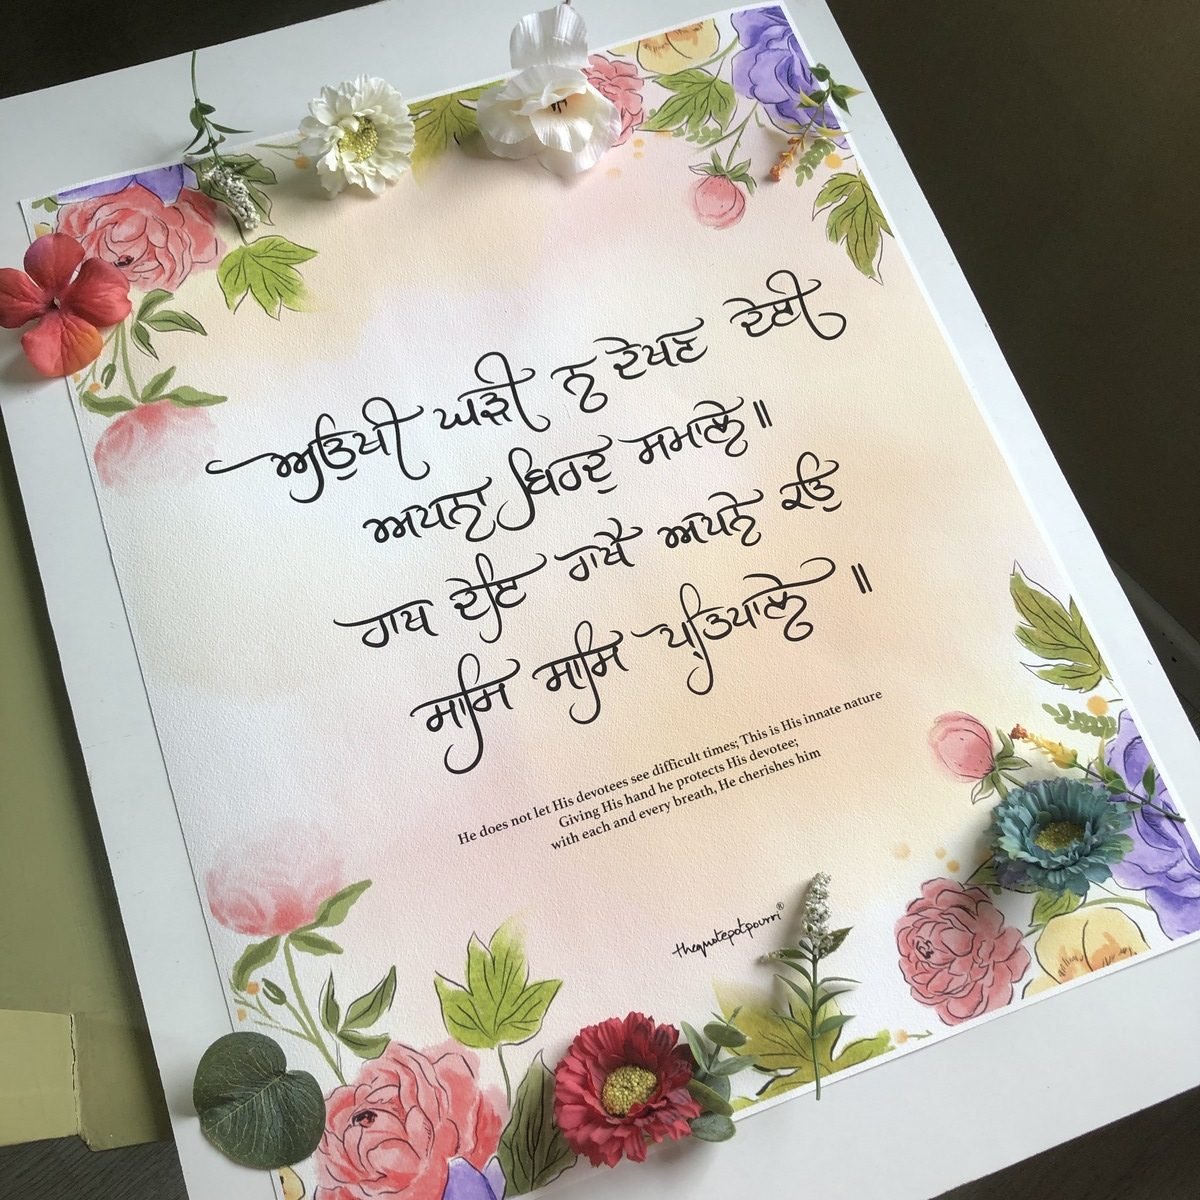 ਅਉਖੀ ਘੜੀ ਨ ਦੇਖਣ ਦੇਈ
ਅਪਨਾ ਬਿਰਦੁ ਸਮਾਲੇ॥
ਹਾਥ ਦੇਇ ਰਾਖੈ ਅਪਨੇ ਕਉ
ਸਾਸਿ ਸਾਸਿ ਪ੍ਰਤਿਪਾਲੇ ॥
He does not let His devotees see difficult times; This is His innate nature
Giving His hand he protects His devotee;
with each and every breath, He cherishes him
thequotepotpourri®